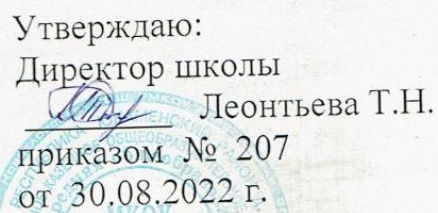 Утверждаю:
Директор школы
Леонтьева Т.Н.
приказом № 207
от 30.08.2022 г.